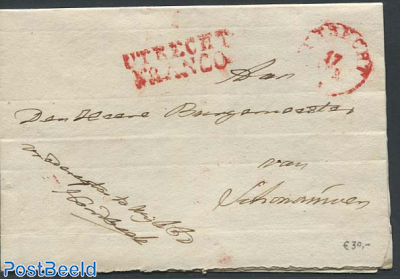 UTRECHT
FRANCO
UTRECHT
17
Aan
Den Heere Burgemeester
van
Schonauwen
€30,-
PostBeeld
PostBeeld